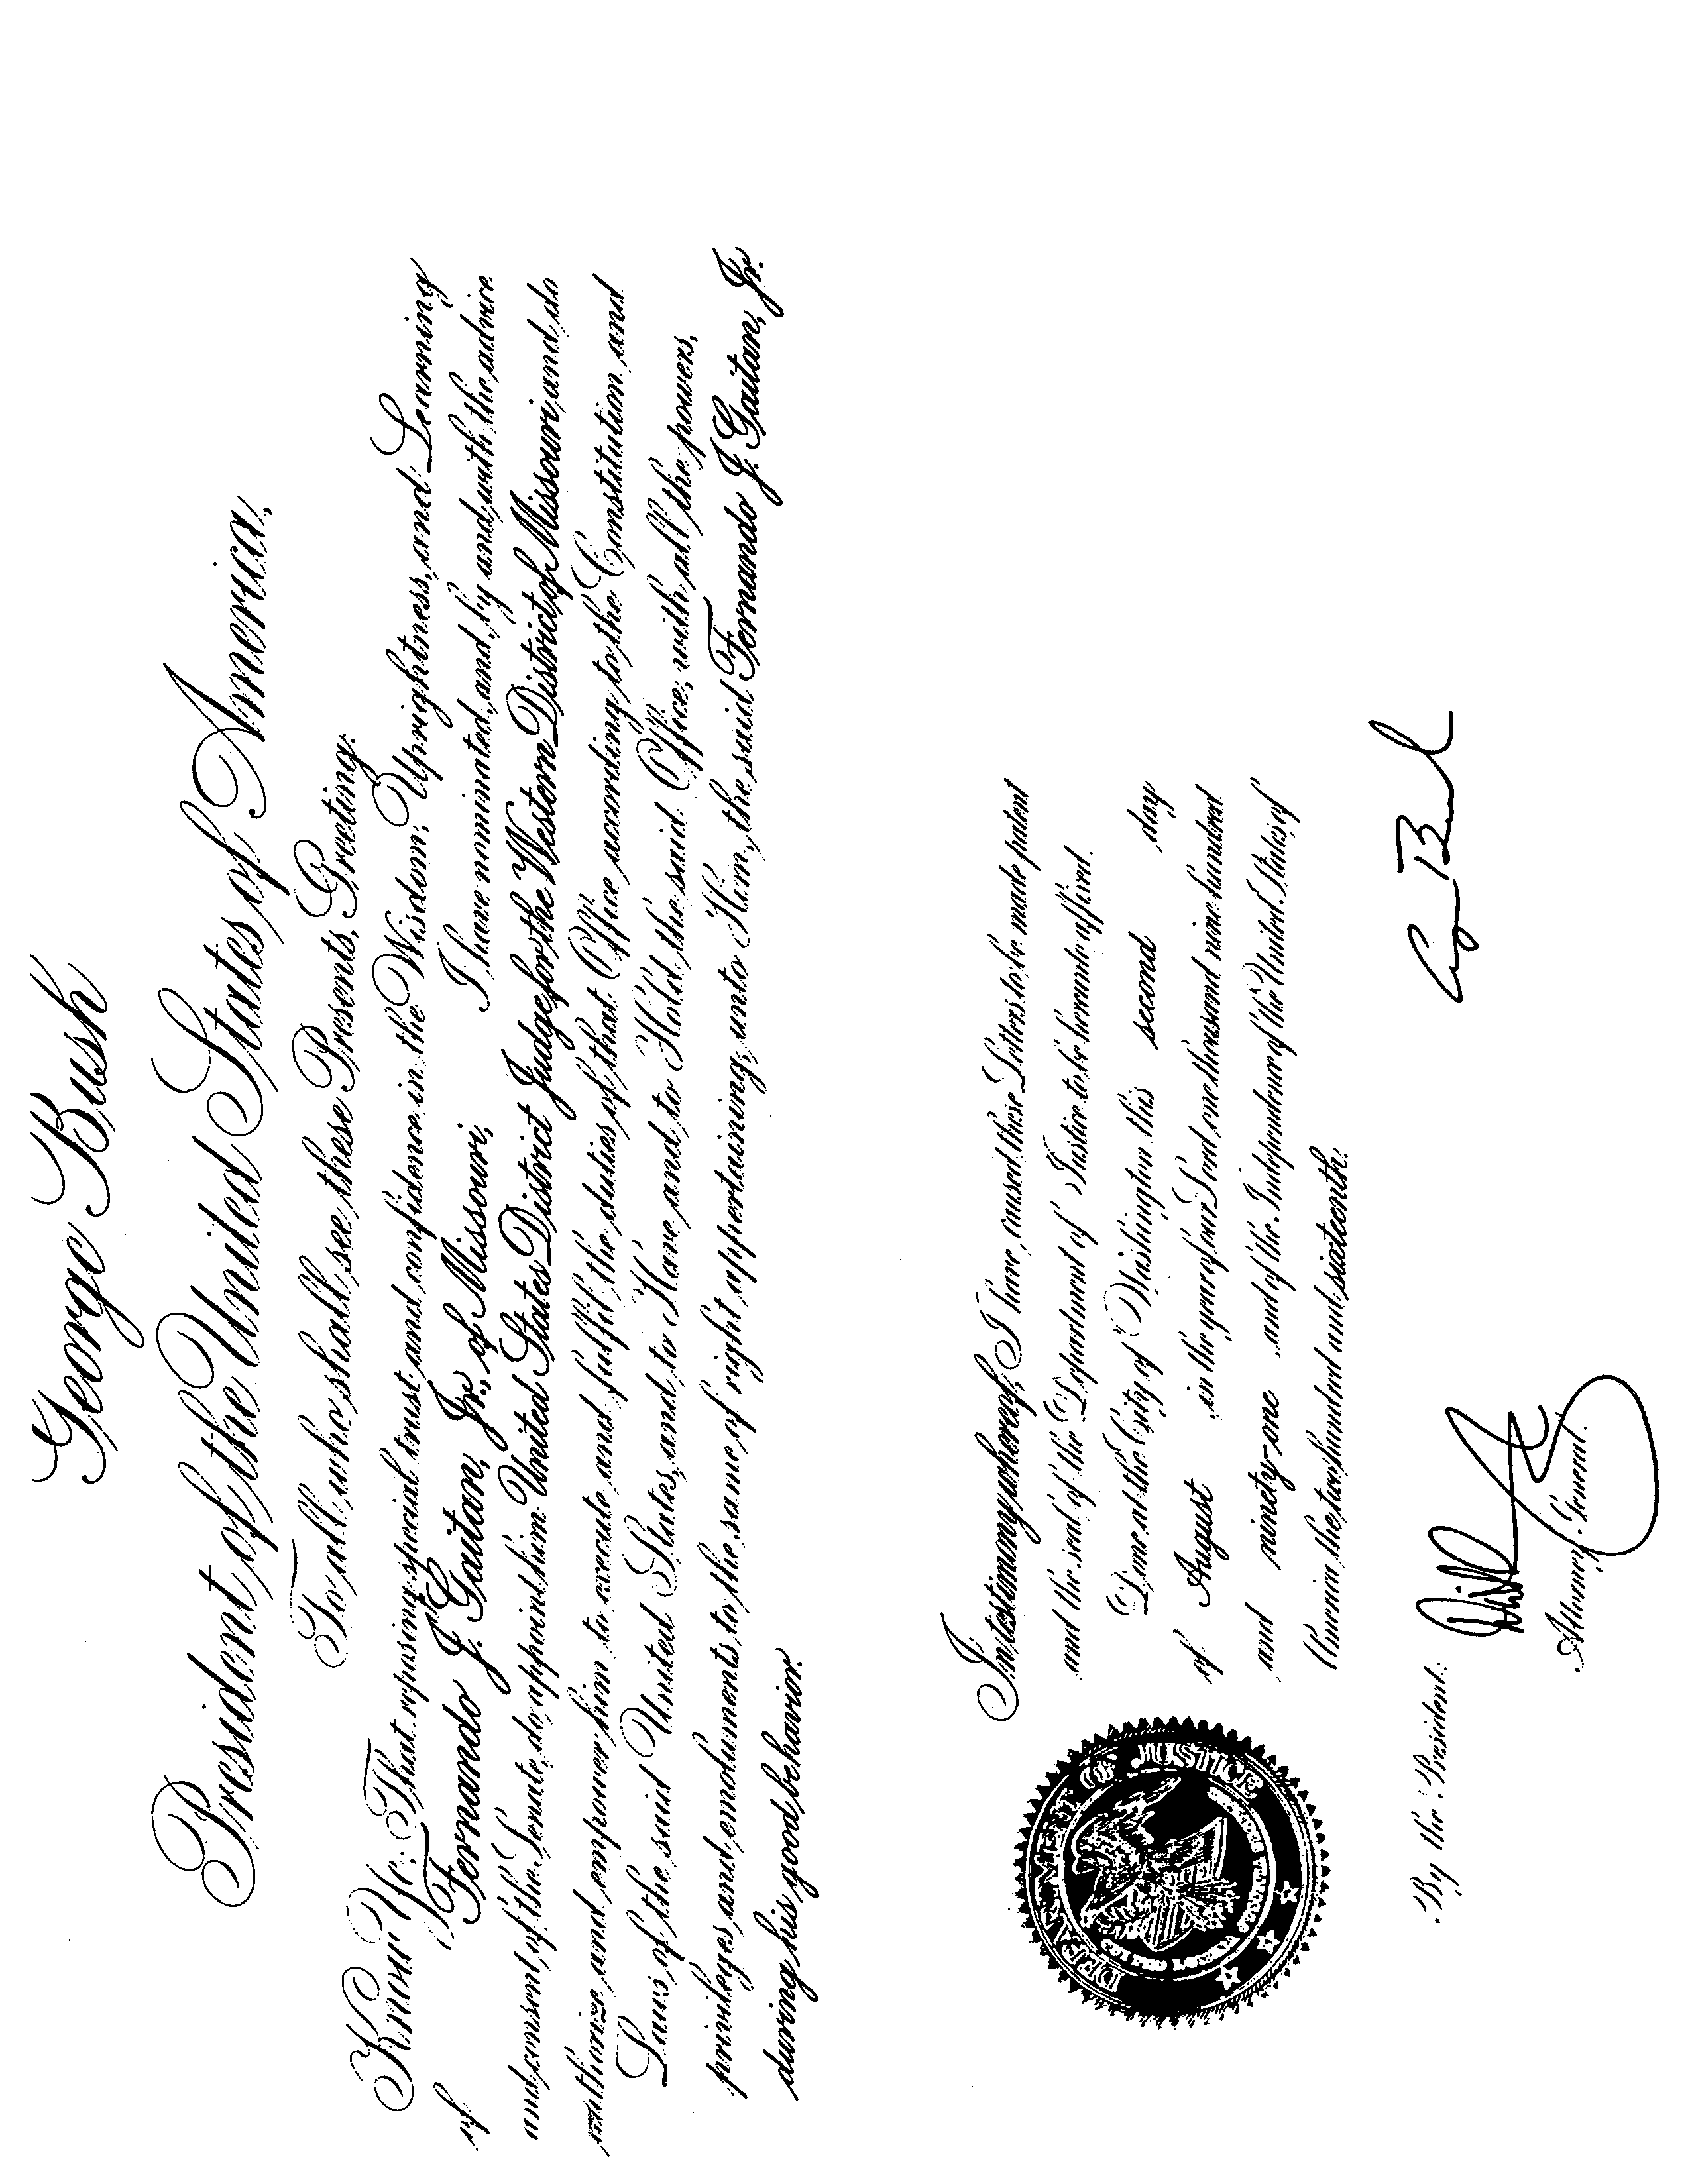 George Bush
President of the United States of America,
To all who shall see these Presents, Greeting:
Know Ye: That reposing special trust and confidence in the Wisdom, Uprightness, and Learning
of Fernando J. Gaitan, Jr., of Missouri, I have nominated, and, by and with the advice
and consent of the Senate, do appoint him United States District Judge for the Western District of Missouri, and do
authorize and empower him to execute and fulfil the duties of that Office according to the Constitution and
Laws of the said United States, and to Have and to Hold the said Office, with all the powers,
privileges and emoluments to the same of right appertaining, unto Him, the said Fernando J. Gaitan, Jr.
during his good behavior.
In testimony whereof, I have caused these Letters to be made patent
and the seal of the Department of Justice to be hereunto affixed.
Done at the City of Washington this second day
of August in the year of our Lord one thousand nine hundred
and ninety-one and of the Independence of the United States of
America the two hundred and sixteenth.
DEPARTMENT OF JUSTICE
By the President:
Attorney General.